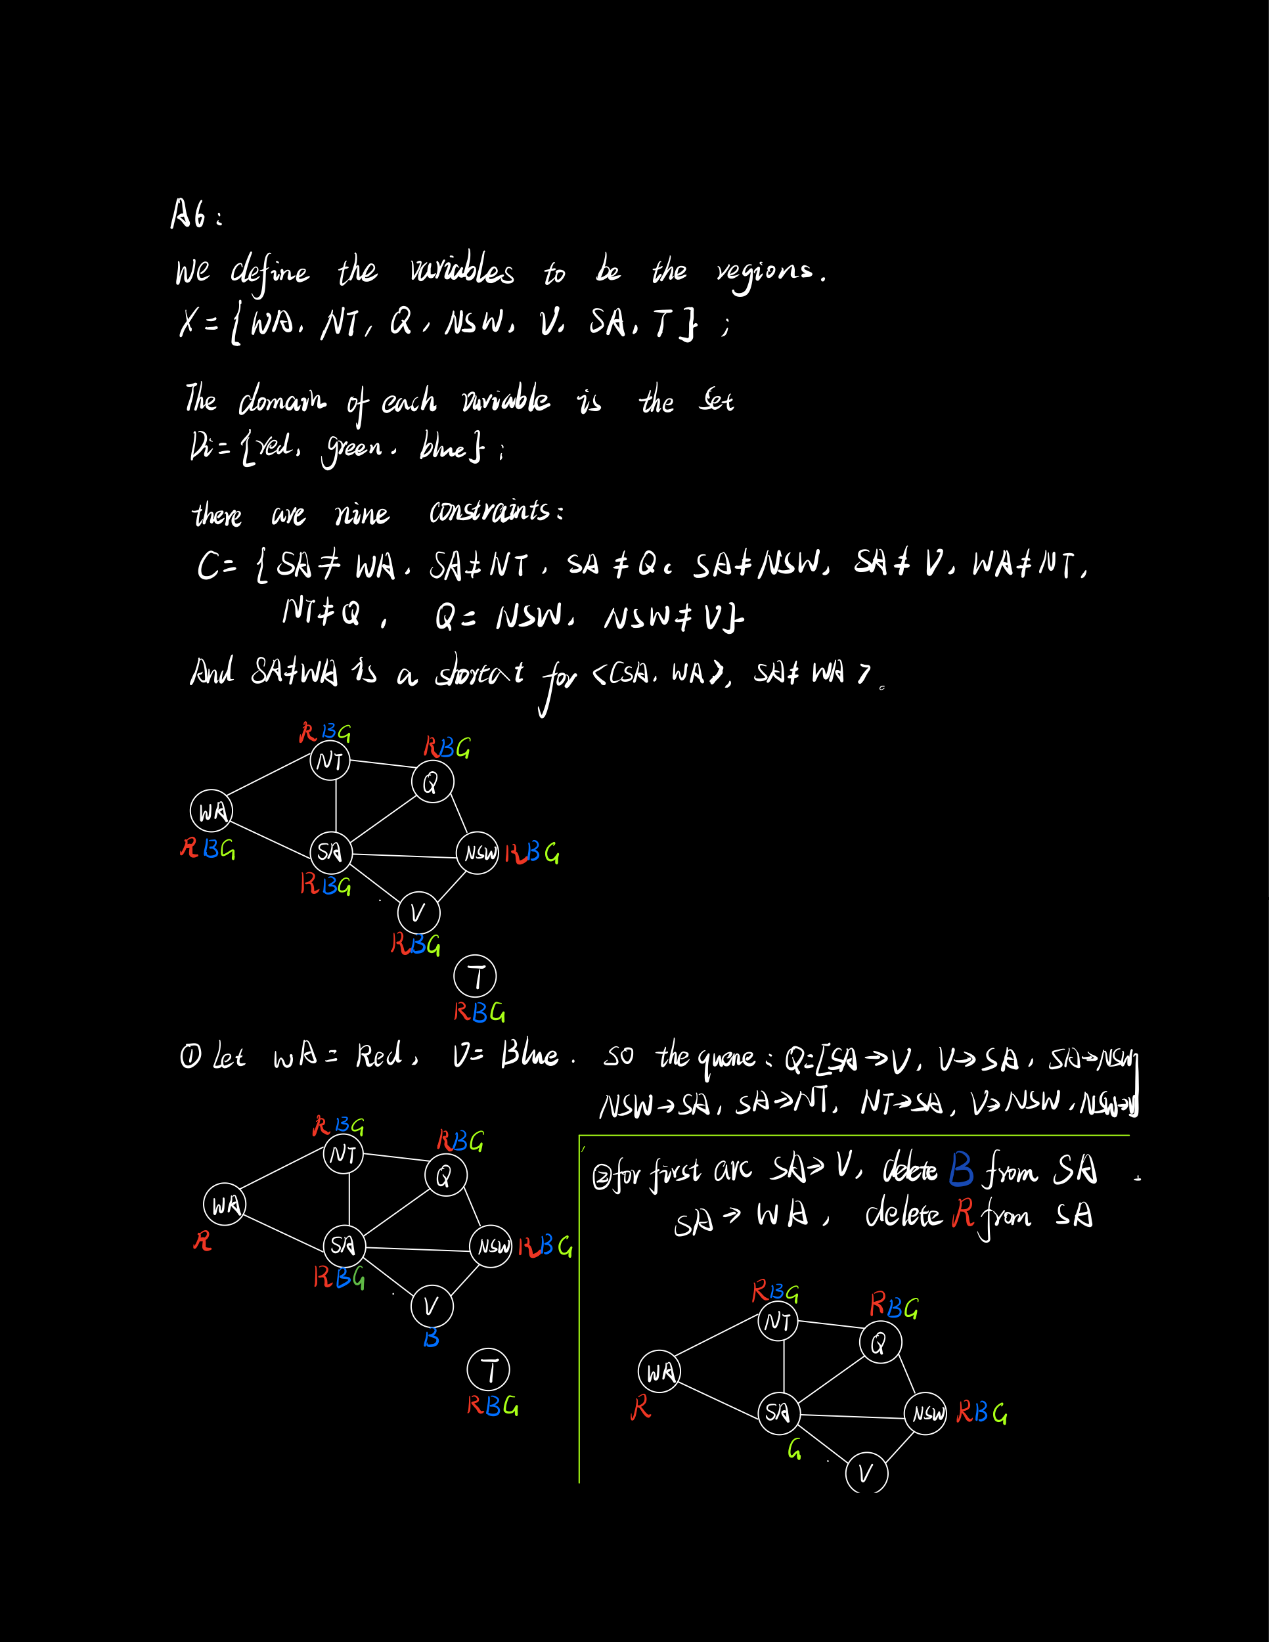 A6:
We define the variables to be the regions.
X = {WA, NT, Q, NSW, V, SA, T} ;
The domain of each variable is the set
Di = {red, green, blue} ;
there are nine constraints:
C = { SA ≠ WA, SA ≠ NT, SA ≠ Q, SA ≠ NSW, SA ≠ V, WA ≠ NT,
NT ≠ Q, Q = NSW, NSW ≠ V}
And SA ≠ WA is a shortcat for <(SA, WA), SA ≠ WA>.
RBG
NT
RBG
Q
WA
RBG
SA
RBG
NSW RBG
V
RBG
T
RBG
① Let WA = Red, V = Blue. so the queue: Q=[SA→V, V→SA, SA→NSW
NSW→SA, SA→NT, NT→SA, V→NSW, NSW→V]
RBG
NT
RBG
Q
WA
R
SA
RBG
NSW RBG
V
B
T
RBG
② for first arc SA→V, delete B from SA.
SA→WA, delete R from SA
RBG
NT
RBG
Q
WA
R
SA
G
NSW RBG
V